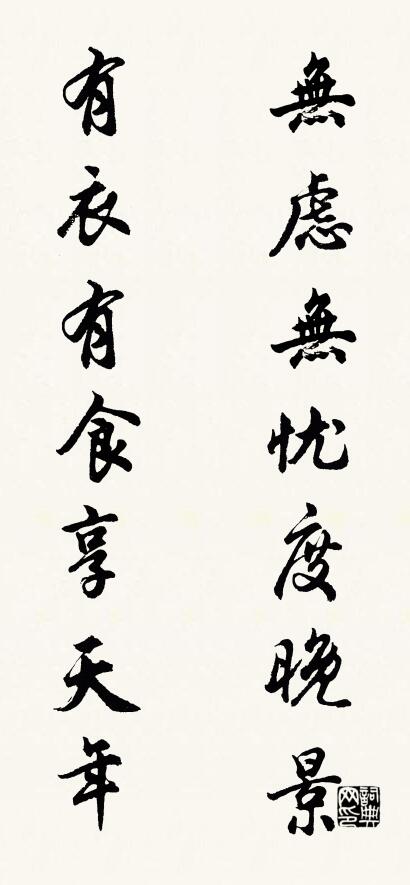 無慮無忧度晚景
有衣有食享天年
詞典网印